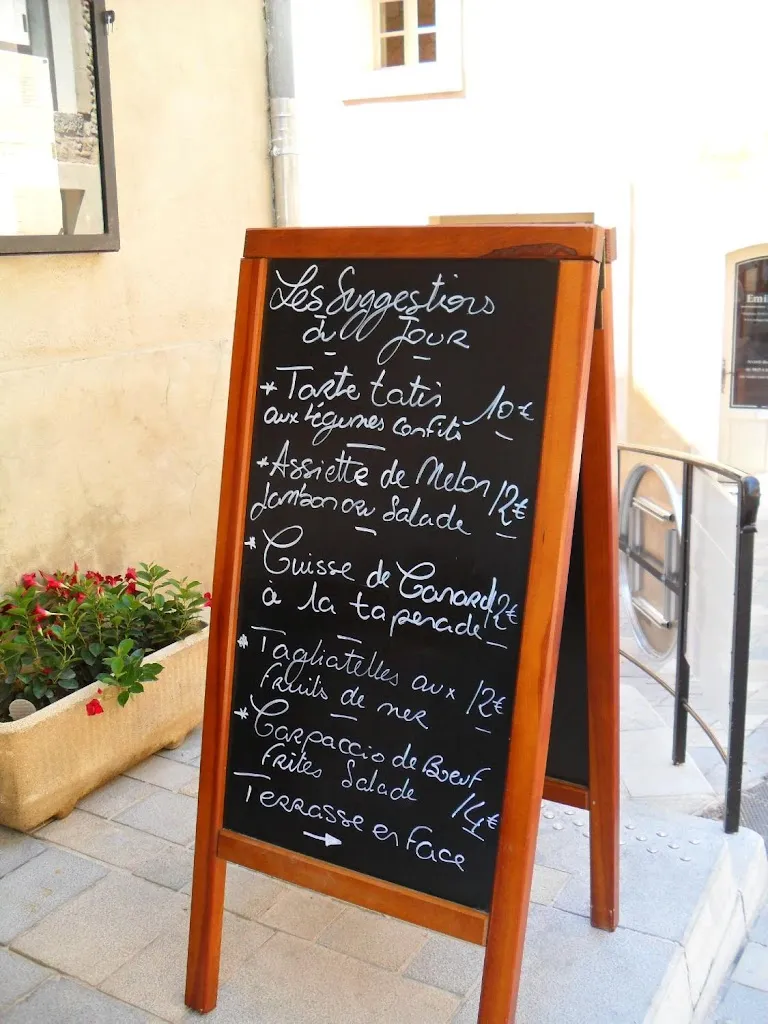 Les Suggestions
du Jour
* Tarte tatis 10€
aux légumes confits
* Assiette de Melon 12€
Jambon ou Salade
* Cuisse de Canard 12€
à la tapenade
* Tagliatelles aux 12€
fruits de mer
* Carpaccio de Boeuf
Frites Salade 14€
Terrasse en face
→
Emi